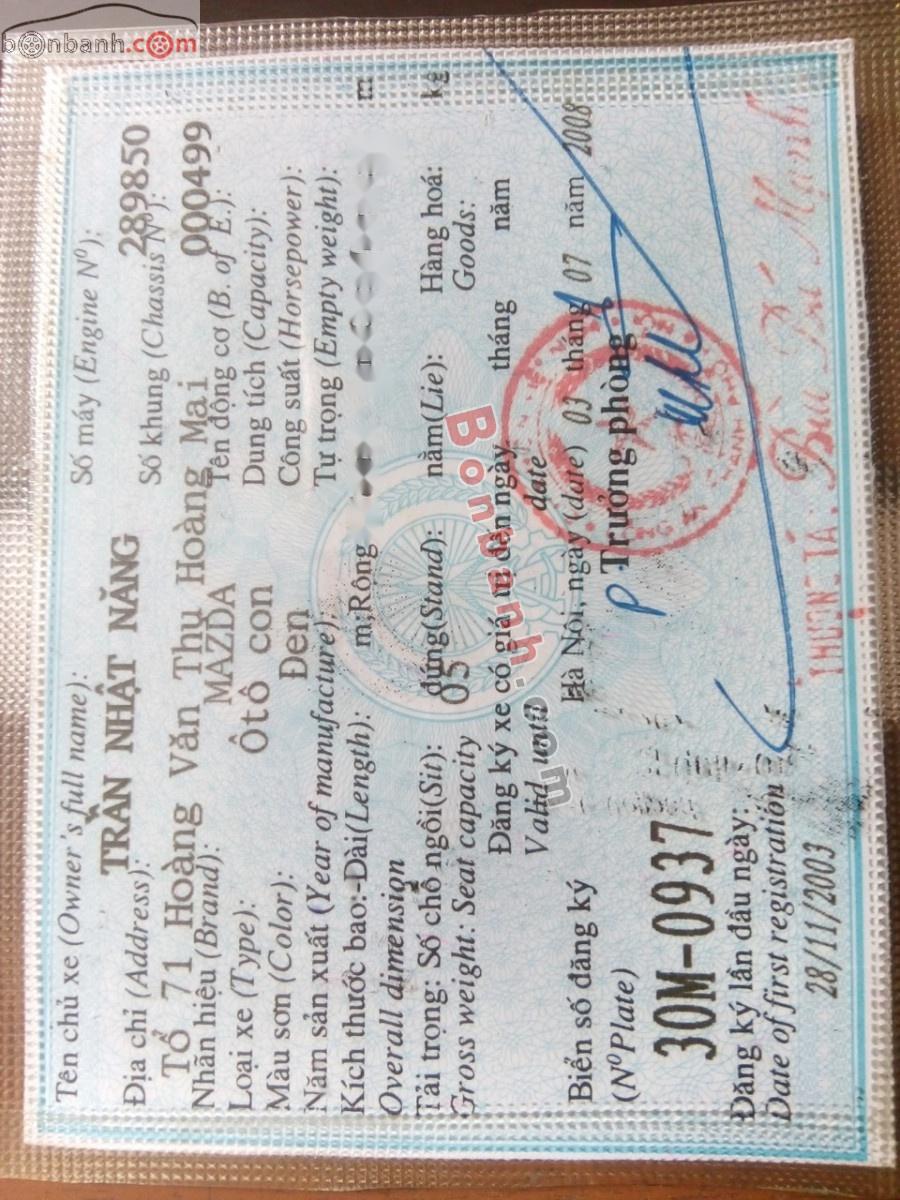 bonbanh.com
Tên chủ xe (Owner's full name): Số máy (Engine Nº):
TRẦN NHẬT NĂNG 289850
Địa chỉ (Address): Số khung (Chassis Nº):
Tổ 71 Hoàng Văn Thụ Hoàng Mai 000499
Nhãn hiệu (Brand): MAZDA Tên động cơ (B. of E.):
Loại xe (Type): Ôtô con Dung tích (Capacity):
Màu sơn (Color): Đen Công suất (Horsepower):
Năm sản xuất (Year of manufacture): Tự trọng (Empty weight):
Kích thước bao:-Dài(Length): m;Rông m
Overall dimension
Tải trọng: Số chỗ ngồi(Sit): đứng(Stand): nằm(Lie): Hàng hoá: kg
Gross weight: Seat capacity 05 Goods:
Đăng ký xe có giá trị đến ngày tháng năm
Valid until date
Bonbanh.com
Biển số đăng ký Hà Nôi, ngày (date) 03 tháng 07 năm 2008
(NºPlate) P Trưởng phòng
30M-0937
Đăng ký lần đầu ngày:
Date of first registration
28/11/2003 THƯỢNG TÁ: